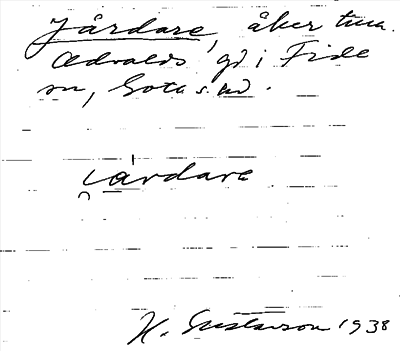 Jårdare, åker till
Ødvalds gd i Fide
sn, Gotl. s. hd.
i̯ȧrdarε
H. Gustavson 1938